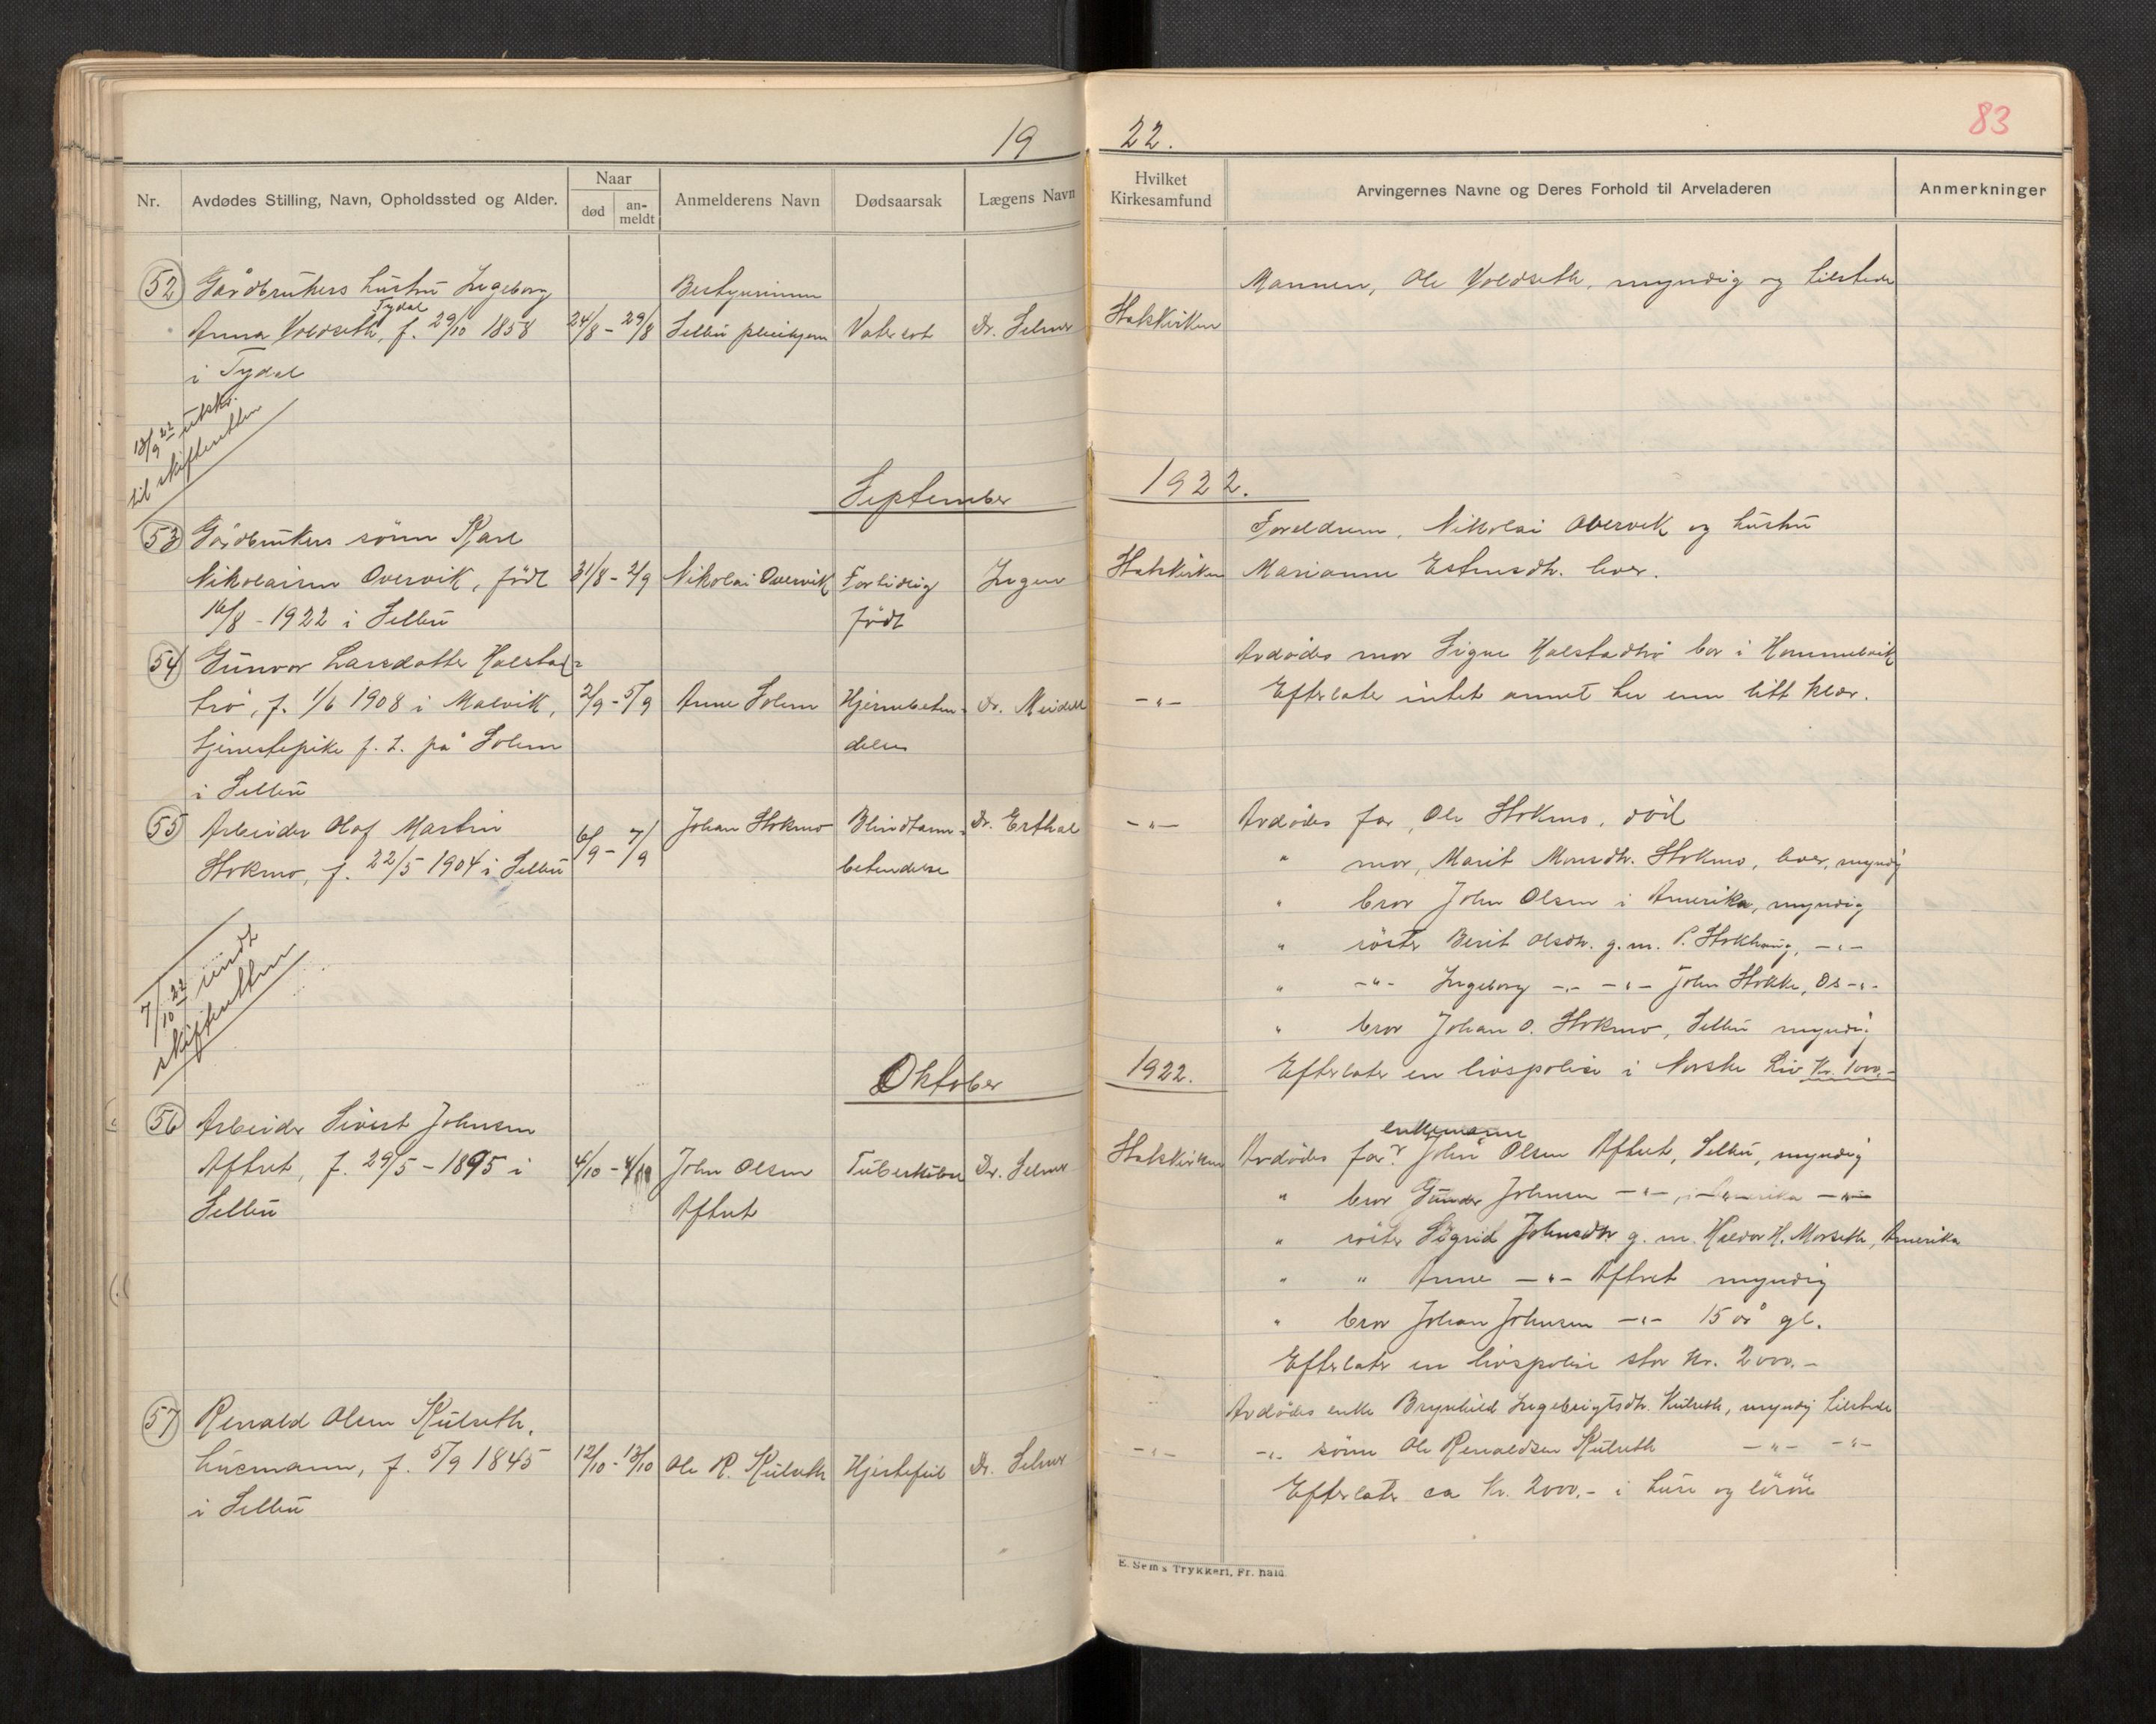 19
22.
83
Nr.
Avdødes Stilling, Navn, Opholdssted og Alder.
Naar
død
an-
meldt
Anmelderens Navn
Dødsaarsak
Lægens Navn
Hvilket
Kirkesamfund
Arvingernes Navne og Deres Forhold til Arveladeren
Anmerkninger
52 Gårdbrukers hustru Ingeborg Bestyrerinnen Mannen, Ole Voldseth, myndig og tilstede
Tydal
Anna Voldseth, f. 29/10 1858 24/8 - 29/8 Selbu pleiehjem Vatersot Dr. Selmer Statskirken
i Tydal
13/9 22 utskr.
til skifteretten
September 1922.
53 Gårdbrukers sönn Karl Foreldrene, Nikolai Overvik og hustru
Nikolaisen Overvik, födt 31/8 - 2/9 Nikolai Overvik Fortidlig Ingen Statskirken Marianne Estensdtr. lever.
16/8 - 1922 i Selbu födt
54 Gunvor Larsdatter Halstad= Avdødes mor Signe Halstadtrö bor i Hommelvik
trö, f. 1/6 1908 i Malvik, 2/9 - 5/9 Anne Solem Hjernebeten= Dr. Meidell -"- Efterlater intet annet her enn litt klær.
tjenestepike f. t. på Solem delse
i Selbu
55 Arbeider Olaf Martin 6/9 - 7/9 Johan Stokmo Blindtarm= Dr. Erthal -"- Avdødes far, Ole Stokmo, död
Stokmo, f. 22/5 1904 i Selbu betendelse " mor, Marit Monsdtr. Stokmo, lever, myndig
" bror John Olsen i Amerika, myndig
" söster Berit Olsdtr. g.m. P. Stokhaug, -"-
7/10 22 innb
skifteretten
" -"- Ingeborg -"- -"- John Stokke, Os -"-
" bror Johan O. Stokmo, Selbu myndig
Oktober 1922. Efterlater en livspolise i Norske Liv Kr. 1000,-
56 Arbeider Sivert Johnsen enkemann
Aftret, f. 29/5 - 1895 i 4/10 - 4/10 John Olsen Tuberkulose Dr. Selmer Statskirken Avdødes far John Olsen Aftret, Selbu, myndig
Selbu Aftret " bror Gunder Johnsen -"- i Amerika -"-
" söster Sigrid Johnsdtr g. m. Haldor H. Morseth, Amerika
" " Anne -"- Aftret myndig
" bror Johan Johnsen -"- 15 år gl.
Efterlater en livspolise stor Kr. 2000.-
57 Renald Olsen Kulseth, Avdødes enke Brynhild Ingebrigtsdtr. Kulseth, myndig tilstede
husmann, f. 5/9 1845 12/10 - 13/10 Ole R. Kulseth Hjertefeil Dr. Selmer -"- -"- sönn Ole Renaldsen Kulseth -"- -"-
i Selbu Efterlater ca Kr. 2000.- i huse og lösöre
E. Sem's Trykkeri, Fr. hald.